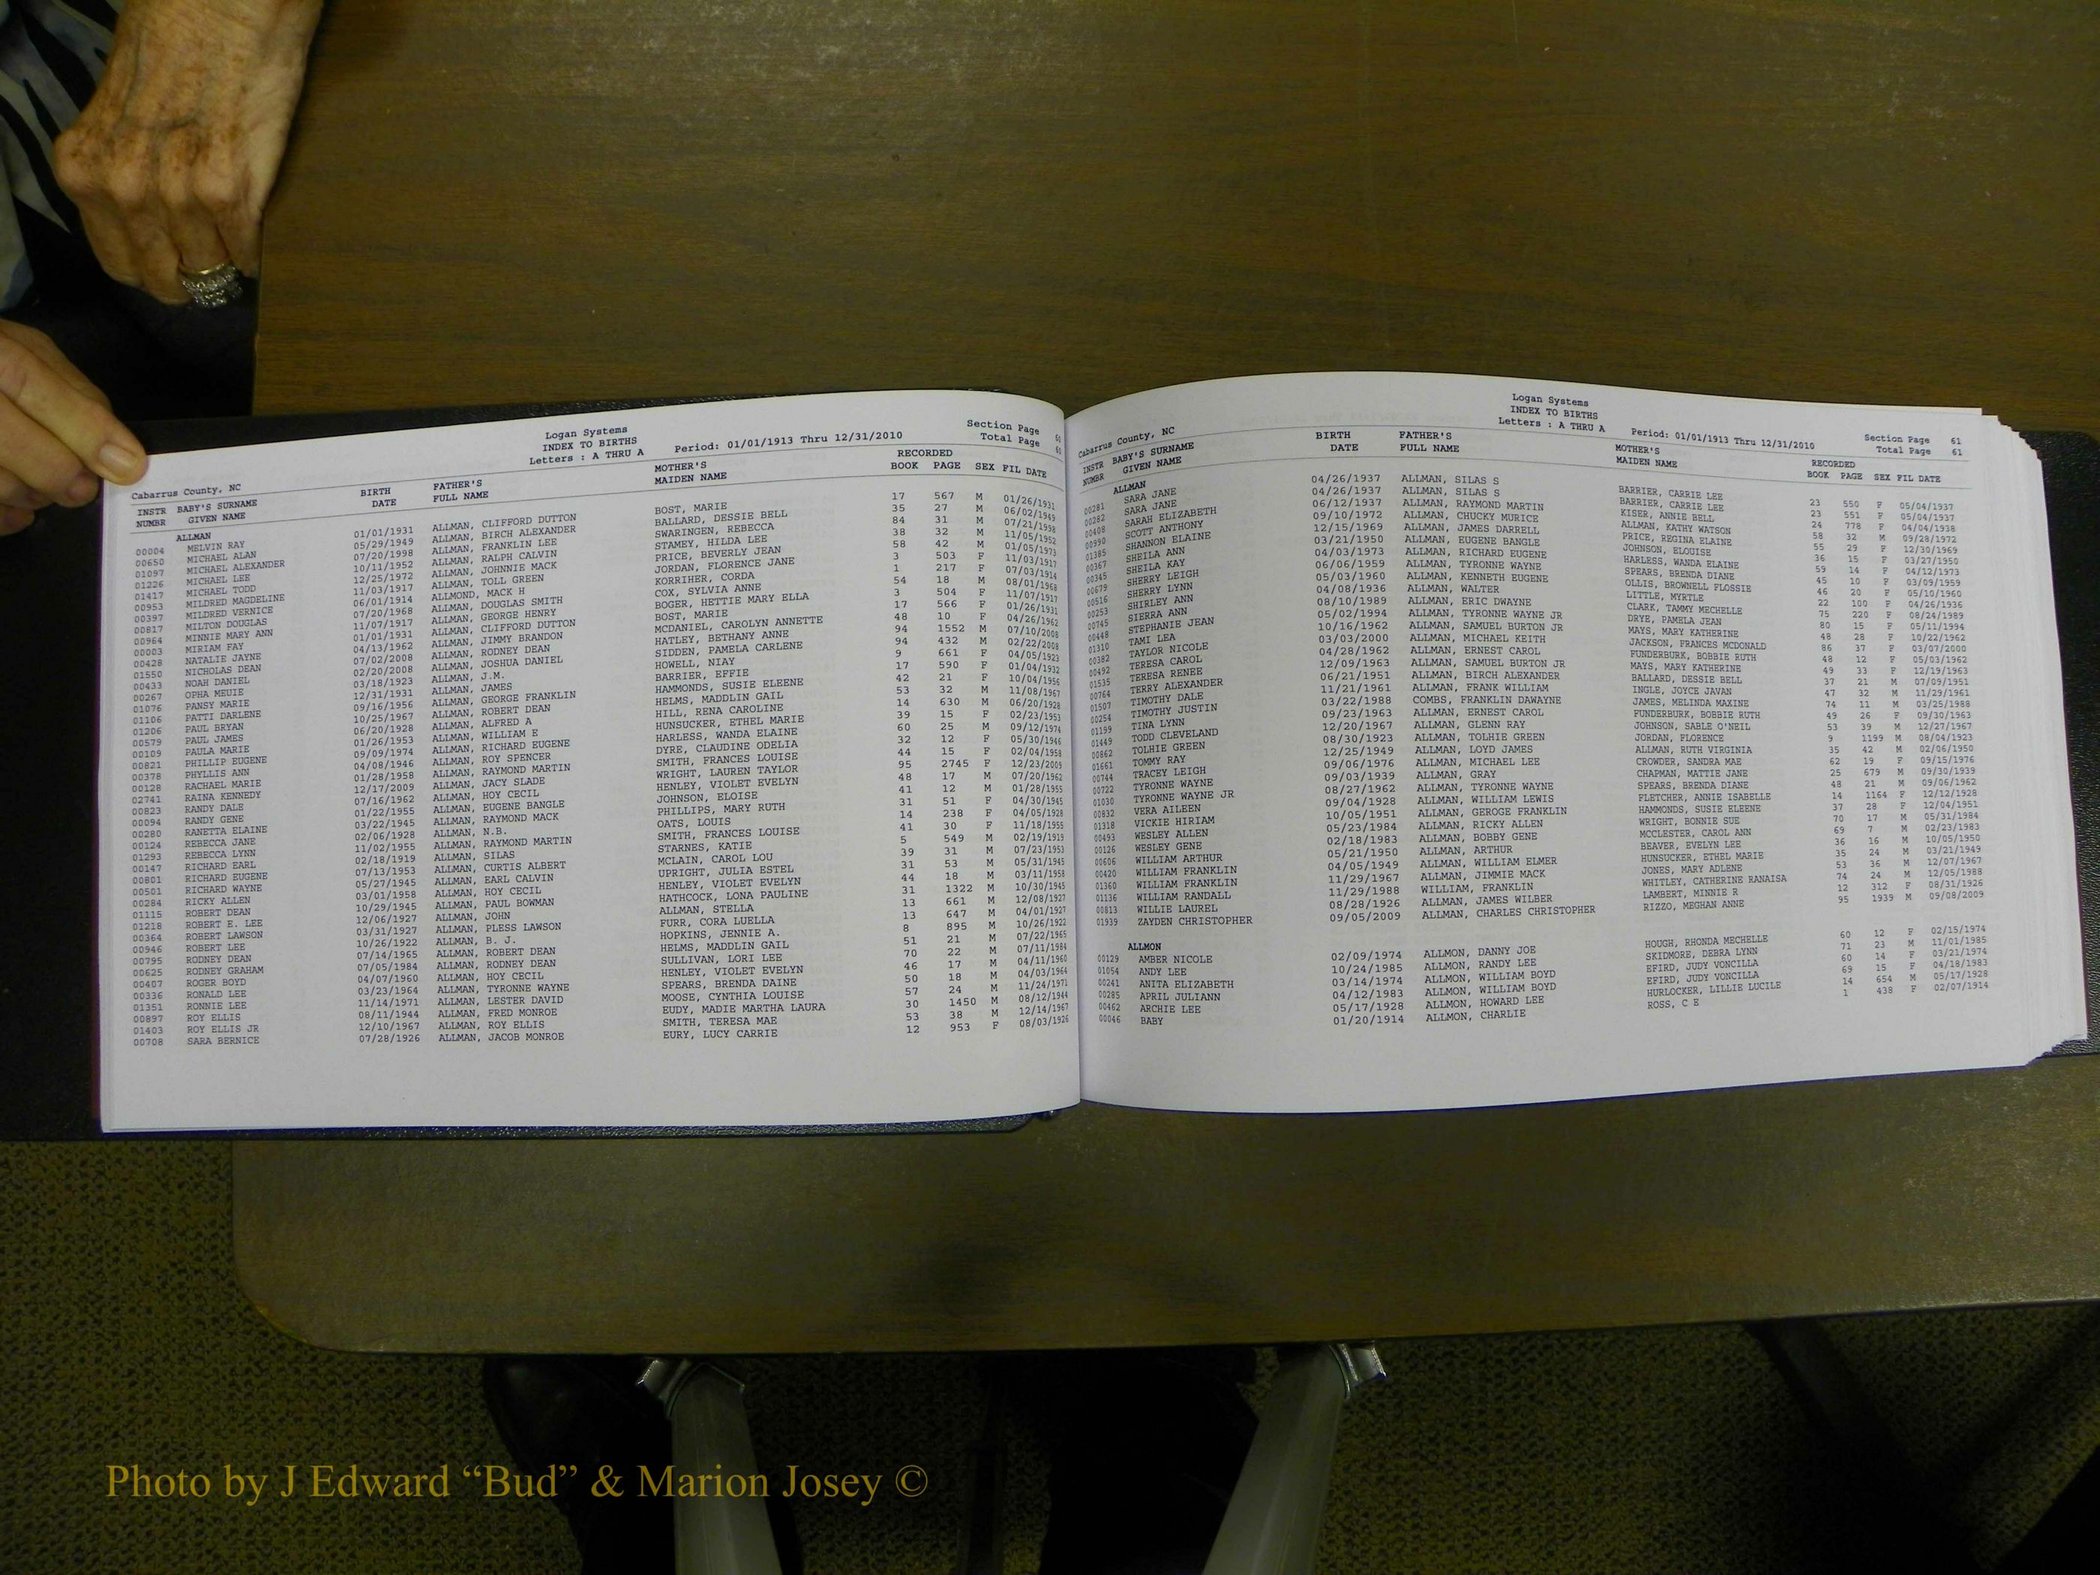 Logan Systems
INDEX TO BIRTHS
Letters : A THRU A Period: 01/01/1913 Thru 12/31/2010
Section Page 60
Total Page 60
Cabarrus County, NC
INSTR BABY'S SURNAME BIRTH FATHER'S MOTHER'S RECORDED
NUMBR GIVEN NAME DATE FULL NAME MAIDEN NAME BOOK PAGE SEX FIL DATE
ALLMAN
00004 MELVIN RAY 01/01/1931 ALLMAN, CLIFFORD DUTTON BOST, MARIE 17 567 M 01/26/1931
00650 MICHAEL ALAN 05/29/1949 ALLMAN, BIRCH ALEXANDER BALLARD, DESSIE BELL 35 27 M 06/02/1949
01097 MICHAEL ALEXANDER 07/20/1998 ALLMAN, FRANKLIN LEE SWARINGEN, REBECCA 84 31 M 07/21/1998
01226 MICHAEL LEE 10/11/1952 ALLMAN, RALPH CALVIN STAMEY, HILDA LEE 38 32 M 11/05/1952
01417 MICHAEL TODD 12/25/1972 ALLMAN, JOHNNIE MACK PRICE, BEVERLY JEAN 58 42 M 01/05/1973
00953 MILDRED MAGDELINE 11/03/1917 ALLMAN, TOLL GREEN JORDAN, FLORENCE JANE 3 503 F 11/03/1917
00397 MILDRED VERNICE 06/01/1914 ALLMOND, MACK H KORRIHER, CORDA 1 217 F 07/03/1914
00817 MILTON DOUGLAS 07/20/1968 ALLMAN, DOUGLAS SMITH COX, SYLVIA ANNE 54 18 M 08/01/1968
00964 MINNIE MARY ANN 11/07/1917 ALLMAN, GEORGE HENRY BOGER, HETTIE MARY ELLA 3 504 F 11/07/1917
00003 MIRIAM FAY 01/01/1931 ALLMAN, CLIFFORD DUTTON BOST, MARIE 17 566 F 01/26/1931
00428 NATALIE JAYNE 04/13/1962 ALLMAN, JIMMY BRANDON MCDANIEL, CAROLYN ANNETTE 48 10 F 04/26/1962
01550 NICHOLAS DEAN 07/02/2008 ALLMAN, RODNEY DEAN HATLEY, BETHANY ANNE 94 1552 M 07/10/2008
00433 NOAH DANIEL 02/20/2008 ALLMAN, JOSHUA DANIEL SIDDEN, PAMELA CARLENE 94 432 M 02/22/2008
00267 OPHA MEUIE 03/18/1923 ALLMAN, J.M. HOWELL, NIAY 9 661 F 04/05/1923
01076 PANSY MARIE 12/31/1931 ALLMAN, JAMES BARRIER, EFFIE 17 590 F 01/04/1932
01106 PATTI DARLENE 09/16/1956 ALLMAN, GEORGE FRANKLIN HAMMONDS, SUSIE ELEENE 42 21 F 10/04/1956
01206 PAUL BRYAN 10/25/1967 ALLMAN, ROBERT DEAN HELMS, MADDLIN GAIL 53 32 M 11/08/1967
00579 PAUL JAMES 06/20/1928 ALLMAN, ALFRED A HILL, RENA CAROLINE 14 630 M 06/20/1928
00109 PAULA MARIE 01/26/1953 ALLMAN, WILLIAM E HUNSUCKER, ETHEL MARIE 39 15 F 02/23/1953
00821 PHILLIP EUGENE 09/09/1974 ALLMAN, RICHARD EUGENE HARLESS, WANDA ELAINE 60 25 M 09/12/1974
00378 PHYLLIS ANN 04/08/1946 ALLMAN, ROY SPENCER DYRE, CLAUDINE ODELIA 32 12 F 05/30/1946
00128 RACHAEL MARIE 01/28/1958 ALLMAN, RAYMOND MARTIN SMITH, FRANCES LOUISE 44 15 F 02/04/1958
02741 RAINA KENNEDY 12/17/2009 ALLMAN, JACY SLADE WRIGHT, LAUREN TAYLOR 95 2745 F 12/23/2009
00823 RANDY DALE 07/16/1962 ALLMAN, HOY CECIL HENLEY, VIOLET EVELYN 48 17 M 07/20/1962
00094 RANDY GENE 01/22/1955 ALLMAN, EUGENE BANGLE JOHNSON, ELOISE 41 12 M 01/28/1955
00280 RANETTA ELAINE 03/22/1945 ALLMAN, RAYMOND MACK PHILLIPS, MARY RUTH 31 51 F 04/30/1945
00124 REBECCA JANE 02/06/1928 ALLMAN, N.B. OATS, LOUIS 14 238 F 04/05/1928
01293 REBECCA LYNN 11/02/1955 ALLMAN, RAYMOND MARTIN SMITH, FRANCES LOUISE 41 30 F 11/18/1955
00147 RICHARD EARL 02/18/1919 ALLMAN, SILAS STARNES, KATIE 5 549 M 02/19/1919
00801 RICHARD EUGENE 07/13/1953 ALLMAN, CURTIS ALBERT MCLAIN, CAROL LOU 39 31 M 07/23/1953
00501 RICHARD WAYNE 05/27/1945 ALLMAN, EARL CALVIN UPRIGHT, JULIA ESTEL 31 53 M 05/31/1945
00284 RICKY ALLEN 03/01/1958 ALLMAN, HOY CECIL HENLEY, VIOLET EVELYN 44 18 M 03/11/1958
01115 ROBERT DEAN 10/29/1945 ALLMAN, PAUL BOWMAN HATHCOCK, LONA PAULINE 31 1322 M 10/30/1945
01218 ROBERT E. LEE 12/06/1927 ALLMAN, JOHN ALLMAN, STELLA 13 661 M 12/08/1927
00364 ROBERT LAWSON 03/31/1927 ALLMAN, PLESS LAWSON FURR, CORA LUELLA 13 647 M 04/01/1927
00946 ROBERT LEE 10/26/1922 ALLMAN, B. J. HOPKINS, JENNIE A. 8 895 M 10/26/1922
00795 RODNEY DEAN 07/14/1965 ALLMAN, ROBERT DEAN HELMS, MADDLIN GAIL 51 21 M 07/22/1965
00625 RODNEY GRAHAM 07/05/1984 ALLMAN, RODNEY DEAN SULLIVAN, LORI LEE 70 22 M 07/11/1984
00407 ROGER BOYD 04/07/1960 ALLMAN, HOY CECIL HENLEY, VIOLET EVELYN 46 17 M 04/11/1960
00336 RONALD LEE 03/23/1964 ALLMAN, TYRONNE WAYNE SPEARS, BRENDA DAINE 50 18 M 04/03/1964
01351 RONNIE LEE 11/14/1971 ALLMAN, LESTER DAVID MOOSE, CYNTHIA LOUISE 57 24 M 11/24/1971
00897 ROY ELLIS 08/11/1944 ALLMAN, FRED MONROE EUDY, MADIE MARTHA LAURA 30 1450 M 08/12/1944
01403 ROY ELLIS JR 12/10/1967 ALLMAN, ROY ELLIS SMITH, TERESA MAE 53 38 M 12/14/1967
00708 SARA BERNICE 07/28/1926 ALLMAN, JACOB MONROE EURY, LUCY CARRIE 12 953 F 08/03/1926
Logan Systems
INDEX TO BIRTHS
Letters : A THRU A Period: 01/01/1913 Thru 12/31/2010
Section Page 61
Total Page 61
Cabarrus County, NC
INSTR BABY'S SURNAME BIRTH FATHER'S MOTHER'S RECORDED
NUMBR GIVEN NAME DATE FULL NAME MAIDEN NAME BOOK PAGE SEX FIL DATE
ALLMAN
00281 SARA JANE 04/26/1937 ALLMAN, SILAS S BARRIER, CARRIE LEE 23 550 F 05/04/1937
00282 SARA JANE 04/26/1937 ALLMAN, SILAS S BARRIER, CARRIE LEE 23 551 F 05/04/1937
00408 SARAH ELIZABETH 06/12/1937 ALLMAN, RAYMOND MARTIN KISER, ANNIE BELL 24 778 F 04/04/1938
00990 SCOTT ANTHONY 09/10/1972 ALLMAN, CHUCKY MURICE ALLMAN, KATHY WATSON 58 32 M 09/28/1972
01385 SHANNON ELAINE 12/15/1969 ALLMAN, JAMES DARRELL PRICE, REGINA ELAINE 55 29 F 12/30/1969
00367 SHEILA ANN 03/21/1950 ALLMAN, EUGENE BANGLE JOHNSON, ELOUISE 36 15 F 03/27/1950
00345 SHEILA KAY 04/03/1973 ALLMAN, RICHARD EUGENE HARLESS, WANDA ELAINE 59 14 F 04/12/1973
00679 SHERRY LEIGH 06/06/1959 ALLMAN, TYRONNE WAYNE SPEARS, BRENDA DIANE 45 10 F 03/09/1959
00516 SHERRY LYNN 05/03/1960 ALLMAN, KENNETH EUGENE OLLIS, BROWNELL FLOSSIE 46 20 F 05/10/1960
00253 SHIRLEY ANN 04/08/1936 ALLMAN, WALTER LITTLE, MYRTLE 22 100 F 04/26/1936
00745 SIERRA ANN 08/10/1989 ALLMAN, ERIC DWAYNE CLARK, TAMMY MECHELLE 75 220 F 08/24/1989
00448 STEPHANIE JEAN 05/02/1994 ALLMAN, TYRONNE WAYNE JR DRYE, PAMELA JEAN 80 15 F 05/11/1994
01310 TAMI LEA 10/16/1962 ALLMAN, SAMUEL BURTON JR MAYS, MARY KATHERINE 48 28 F 10/22/1962
00382 TAYLOR NICOLE 03/03/2000 ALLMAN, MICHAEL KEITH JACKSON, FRANCES MCDONALD 86 37 F 03/07/2000
00492 TERESA CAROL 04/28/1962 ALLMAN, ERNEST CAROL FUNDERBURK, BOBBIE RUTH 48 12 F 05/03/1962
01535 TERESA RENEE 12/09/1963 ALLMAN, SAMUEL BURTON JR MAYS, MARY KATHERINE 49 33 F 12/19/1963
00764 TERRY ALEXANDER 06/21/1951 ALLMAN, BIRCH ALEXANDER BALLARD, DESSIE BELL 37 21 M 07/09/1951
01507 TIMOTHY DALE 11/21/1961 ALLMAN, FRANK WILLIAM INGLE, JOYCE JAVAN 47 32 M 11/29/1961
00254 TIMOTHY JUSTIN 03/22/1988 COMBS, FRANKLIN DAWAYNE JAMES, MELINDA MAXINE 74 11 M 03/25/1988
01199 TINA LYNN 09/23/1963 ALLMAN, ERNEST CAROL FUNDERBURK, BOBBIE RUTH 49 26 F 09/30/1963
01449 TODD CLEVELAND 12/20/1967 ALLMAN, GLENN RAY JOHNSON, SABLE O'NEIL 53 39 M 12/27/1967
00862 TOLHIE GREEN 08/30/1923 ALLMAN, TOLHIE GREEN JORDAN, FLORENCE 9 1199 M 08/04/1923
01661 TOMMY RAY 12/25/1949 ALLMAN, LOYD JAMES ALLMAN, RUTH VIRGINIA 35 42 M 02/06/1950
00744 TRACEY LEIGH 09/06/1976 ALLMAN, MICHAEL LEE CROWDER, SANDRA MAE 62 19 F 09/15/1976
00722 TYRONNE WAYNE 09/03/1939 ALLMAN, GRAY CHAPMAN, MATTIE JANE 25 679 M 09/30/1939
01030 TYRONNE WAYNE JR 08/27/1962 ALLMAN, TYRONNE WAYNE SPEARS, BRENDA DIANE 48 21 M 09/06/1962
00832 VERA AILEEN 09/04/1928 ALLMAN, WILLIAM LEWIS FLETCHER, ANNIE ISABELLE 14 1164 F 12/12/1928
01318 VICKIE HIRIAM 10/05/1951 ALLMAN, GEROGE FRANKLIN HAMMONDS, SUSIE ELEENE 37 28 F 12/04/1951
00493 WESLEY ALLEN 05/23/1984 ALLMAN, RICKY ALLEN WRIGHT, BONNIE SUE 70 17 M 05/31/1984
00126 WESLEY GENE 02/18/1983 ALLMAN, BOBBY GENE MCCLESTER, CAROL ANN 69 7 M 02/23/1983
00606 WILLIAM ARTHUR 05/21/1950 ALLMAN, ARTHUR BEAVER, EVELYN LEE 36 16 M 10/05/1950
00420 WILLIAM FRANKLIN 04/05/1949 ALLMAN, WILLIAM ELMER HUNSUCKER, ETHEL MARIE 35 24 M 03/21/1949
01360 WILLIAM FRANKLIN 11/29/1967 ALLMAN, JIMMIE MACK JONES, MARY ADLENE 53 36 M 12/07/1967
01136 WILLIAM RANDALL 11/29/1988 WILLIAM, FRANKLIN WHITLEY, CATHERINE RANAISA 74 24 M 12/05/1988
00813 WILLIE LAUREL 08/28/1926 ALLMAN, JAMES WILBER LAMBERT, MINNIE R 12 312 F 08/31/1926
01939 ZAYDEN CHRISTOPHER 09/05/2009 ALLMAN, CHARLES CHRISTOPHER RIZZO, MEGHAN ANNE 95 1939 M 09/08/2009
ALLMON
00129 AMBER NICOLE 02/09/1974 ALLMON, DANNY JOE HOUGH, RHONDA MECHELLE 60 12 F 02/15/1974
01054 ANDY LEE 10/24/1985 ALLMON, RANDY LEE SKIDMORE, DEBRA LYNN 71 23 M 11/01/1985
00241 ANITA ELIZABETH 03/14/1974 ALLMON, WILLIAM BOYD EFIRD, JUDY VONCILLA 60 14 F 03/21/1974
00285 APRIL JULIANN 04/12/1983 ALLMON, WILLIAM BOYD EFIRD, JUDY VONCILLA 69 15 F 04/18/1983
00462 ARCHIE LEE 05/17/1928 ALLMON, HOWARD LEE HURLOCKER, LILLIE LUCILE 14 654 M 05/17/1928
00046 BABY 01/20/1914 ALLMON, CHARLIE ROSS, C E 1 438 F 02/07/1914
Photo by J Edward “Bud” & Marion Josey ©